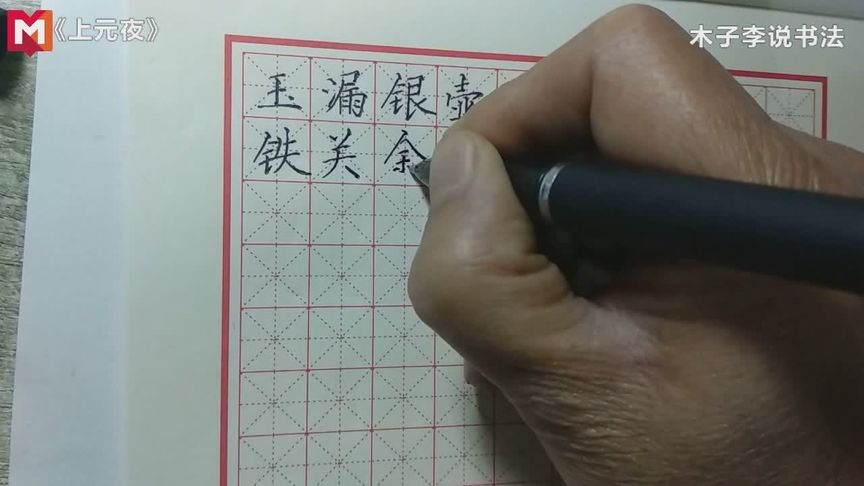 《上元夜》
木子李说书法
玉漏银壶
铁关余